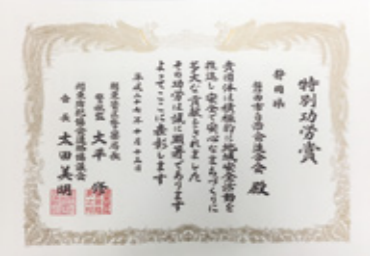 特別功労賞
静岡県
静岡市自治会連合会 殿
貴団体は積極的に地域安全活動を
推進し安全で安心なまちづくりに
多大な貢献をされました
その功労は誠に顕著であります
よってここに表彰します
平成二十七年十月十五日
関東管区警察局長
警視監 大平 修
関東防犯協会連絡協議会
会長 太田美明